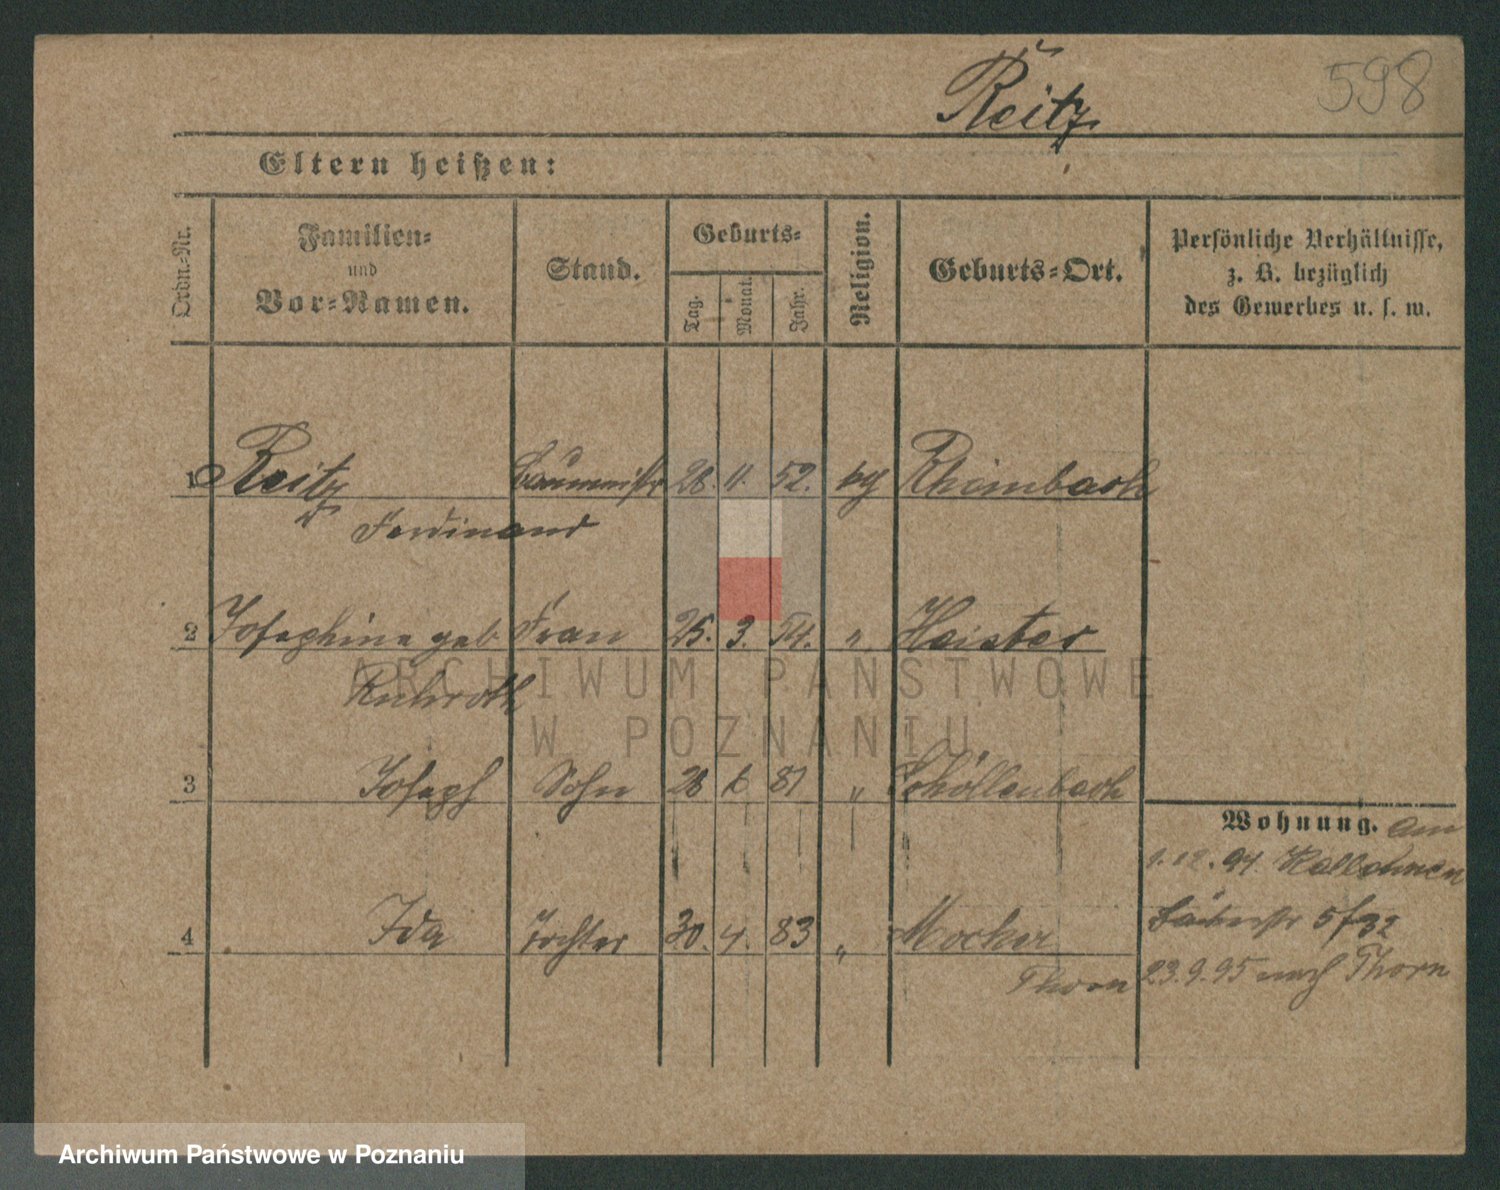 Reitz
598
Eltern heißen:
Ordn.-Nr.
Familien-
und
Vor-Namen.
Stand.
Geburts-
Tag.
Monat.
Jahr.
Religion.
Geburts-Ort.
Persönliche Verhältnisse,
z. B. bezüglich
des Gewerbes u. s. w.
1 Reitz Baumeister 28. 11. 52. kg Rheinbach
Ferdinand
2 Josephine geb. Frau 25. 3. 54. " Heister
Ruhroth
3 Joseph Sohn 28 6 81 " Schöllenbach
Wohnung. Am
1.12.94.
4 Ida Tochter 30. 4. 83 " Mocker
Thorn
23.9.95 nach Thorn
ARCHIWUM PAŃSTWOWE
W POZNANIU
Archiwum Państwowe w Poznaniu